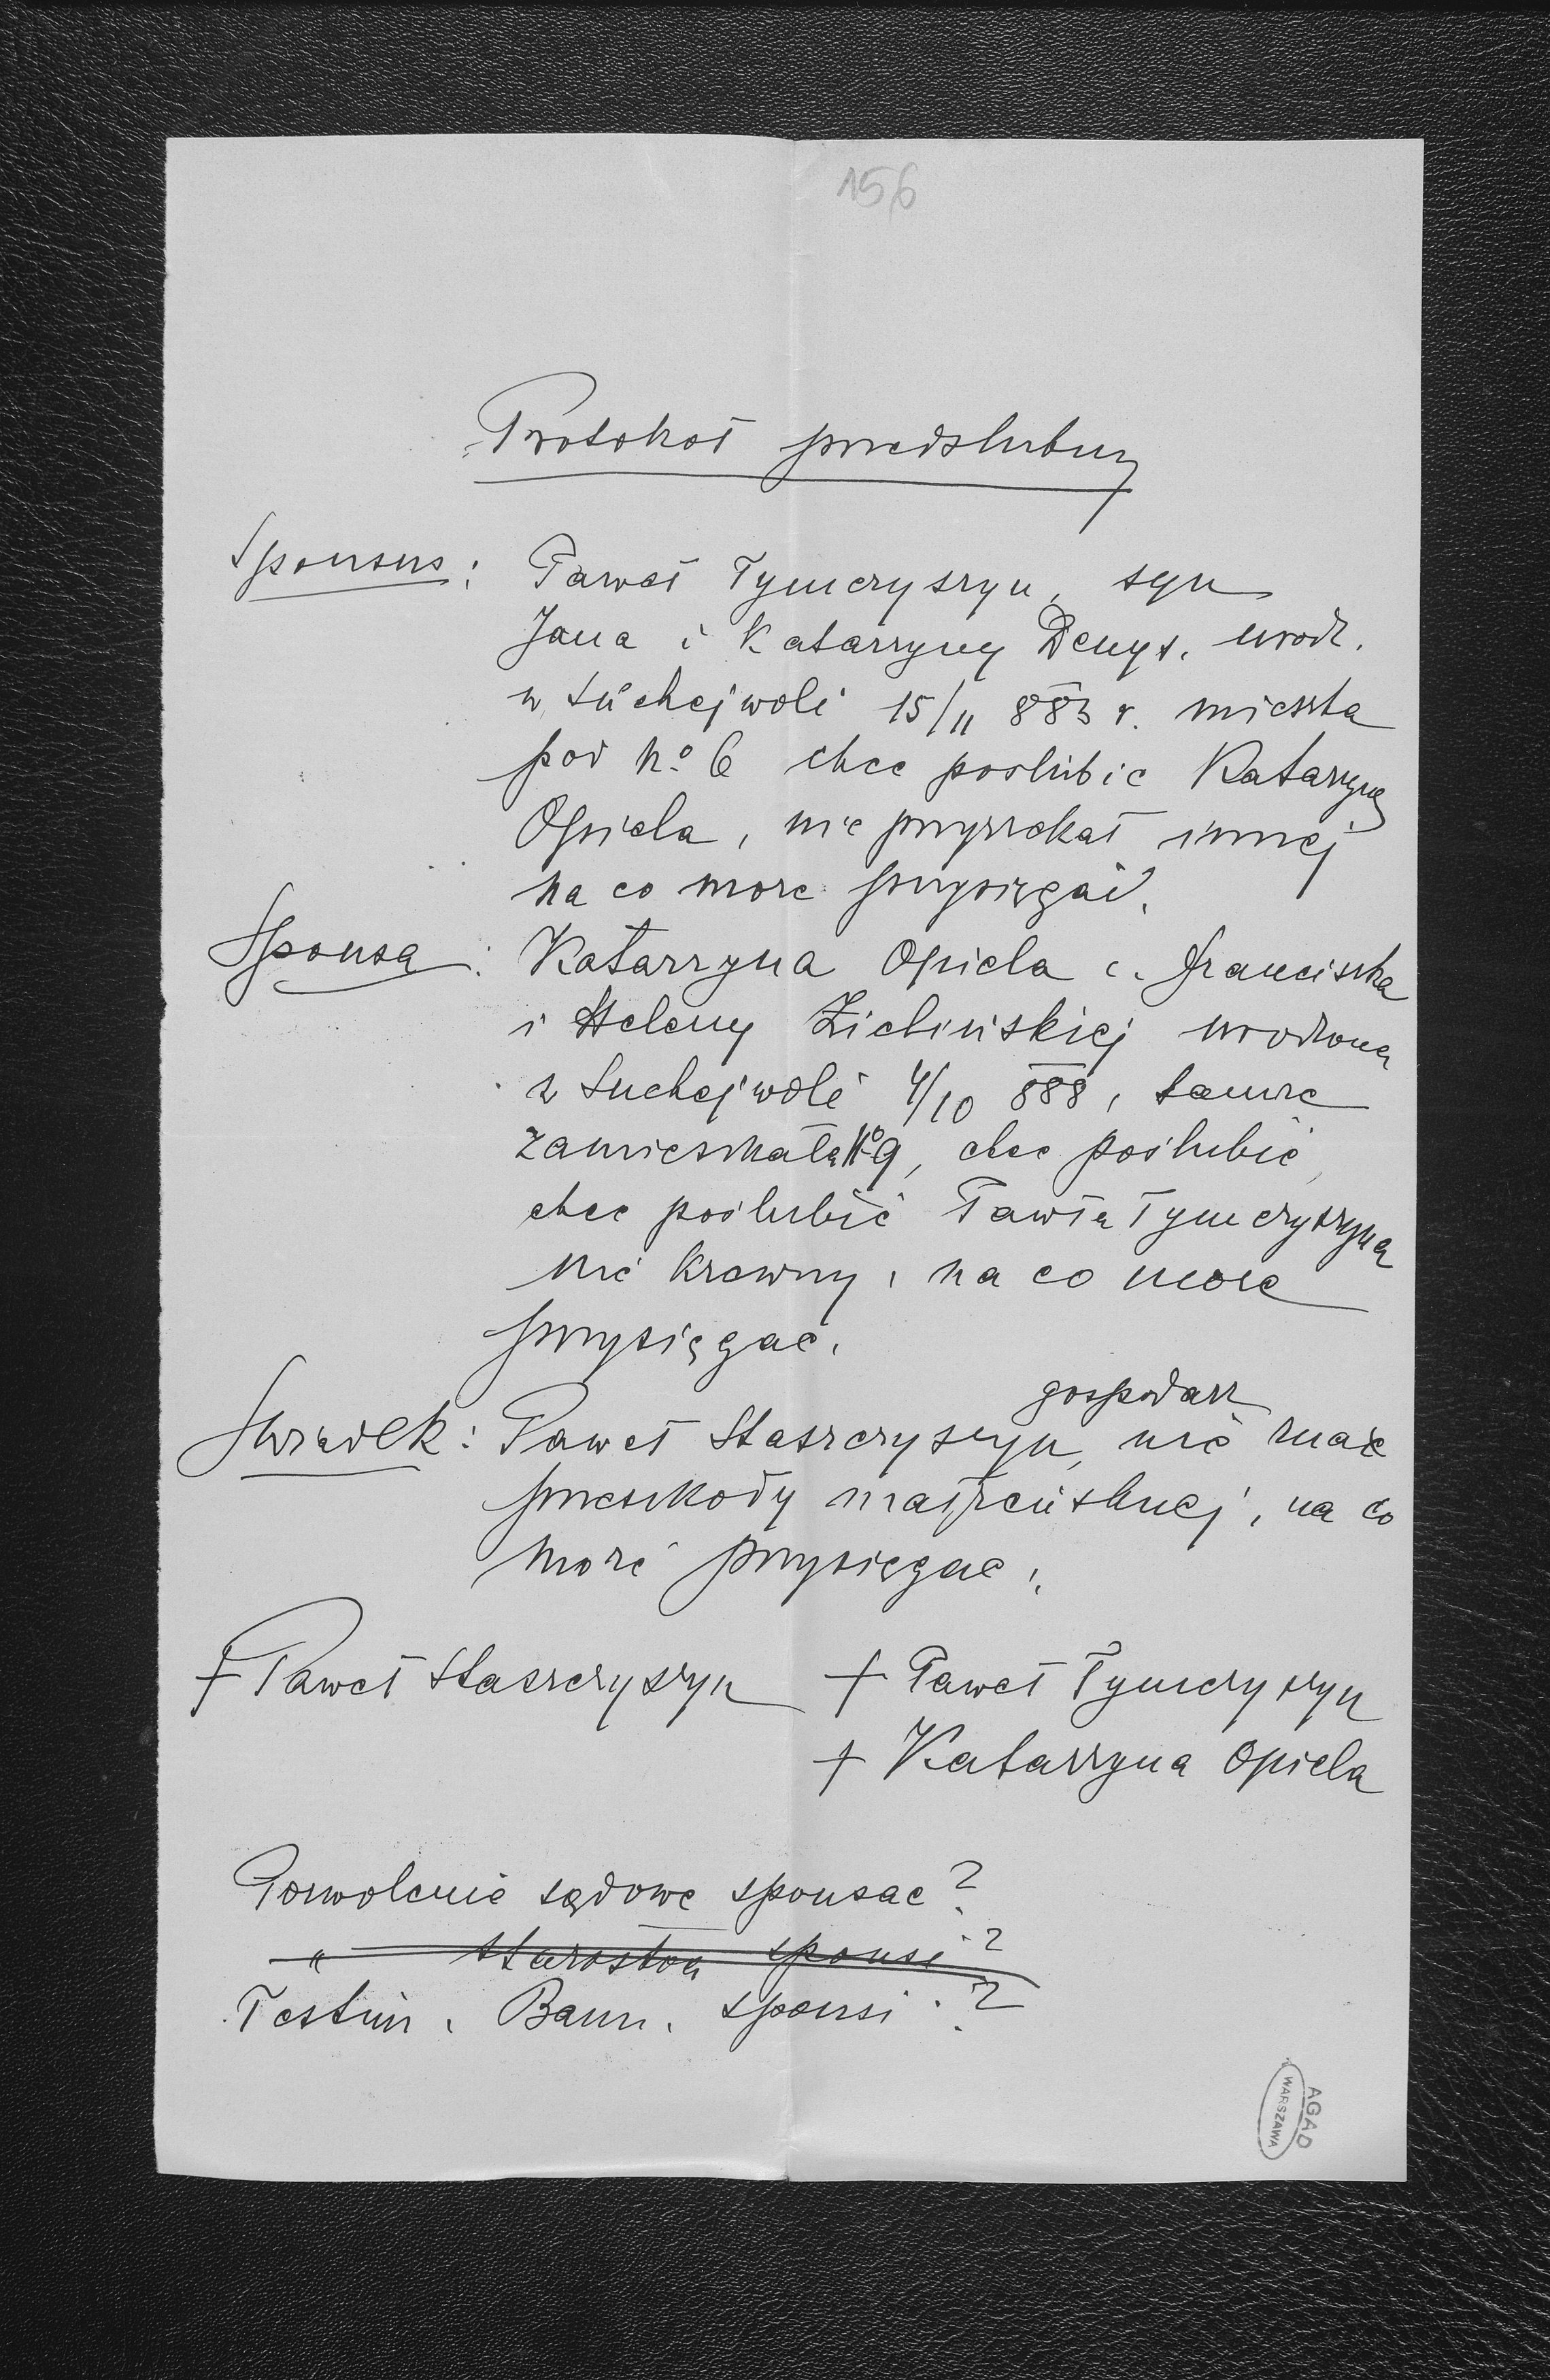 156
Protokoł przedślubny
Sponsus: Paweł Tymczyszyn, syn
Jana i Katarzyny Denys. urodz.
w Suchejwoli 15/11 883 r. mieszka
pod No 6 chce poslubic Katarzynę
Opiela, nie przyrzekał innej
na co może przysięgać.
Sponsa: Katarzyna Opiela c. Franciszka
i Heleny Zielińskiej urodzona
w Suchejwoli 4/10 888, tamże
zamieszkała No 9, chce poślubić,
chce poślubić Pawła Tymczyszyna
nie krewny, na co może
przysięgac.
gospodarz
Swiadek: Paweł Staszczyszyn, nie zna
przeszkody małżeńskiej, na co
może przysięgac.
+ Paweł Staszczyszyn + Paweł Tymczyszyn
+ Katarzyna Opiela
Pozwolenie sądowe sponsae?
" starostwa sponsi?
Testim. Bann. sponsi?
AGAD
WARSZAWA